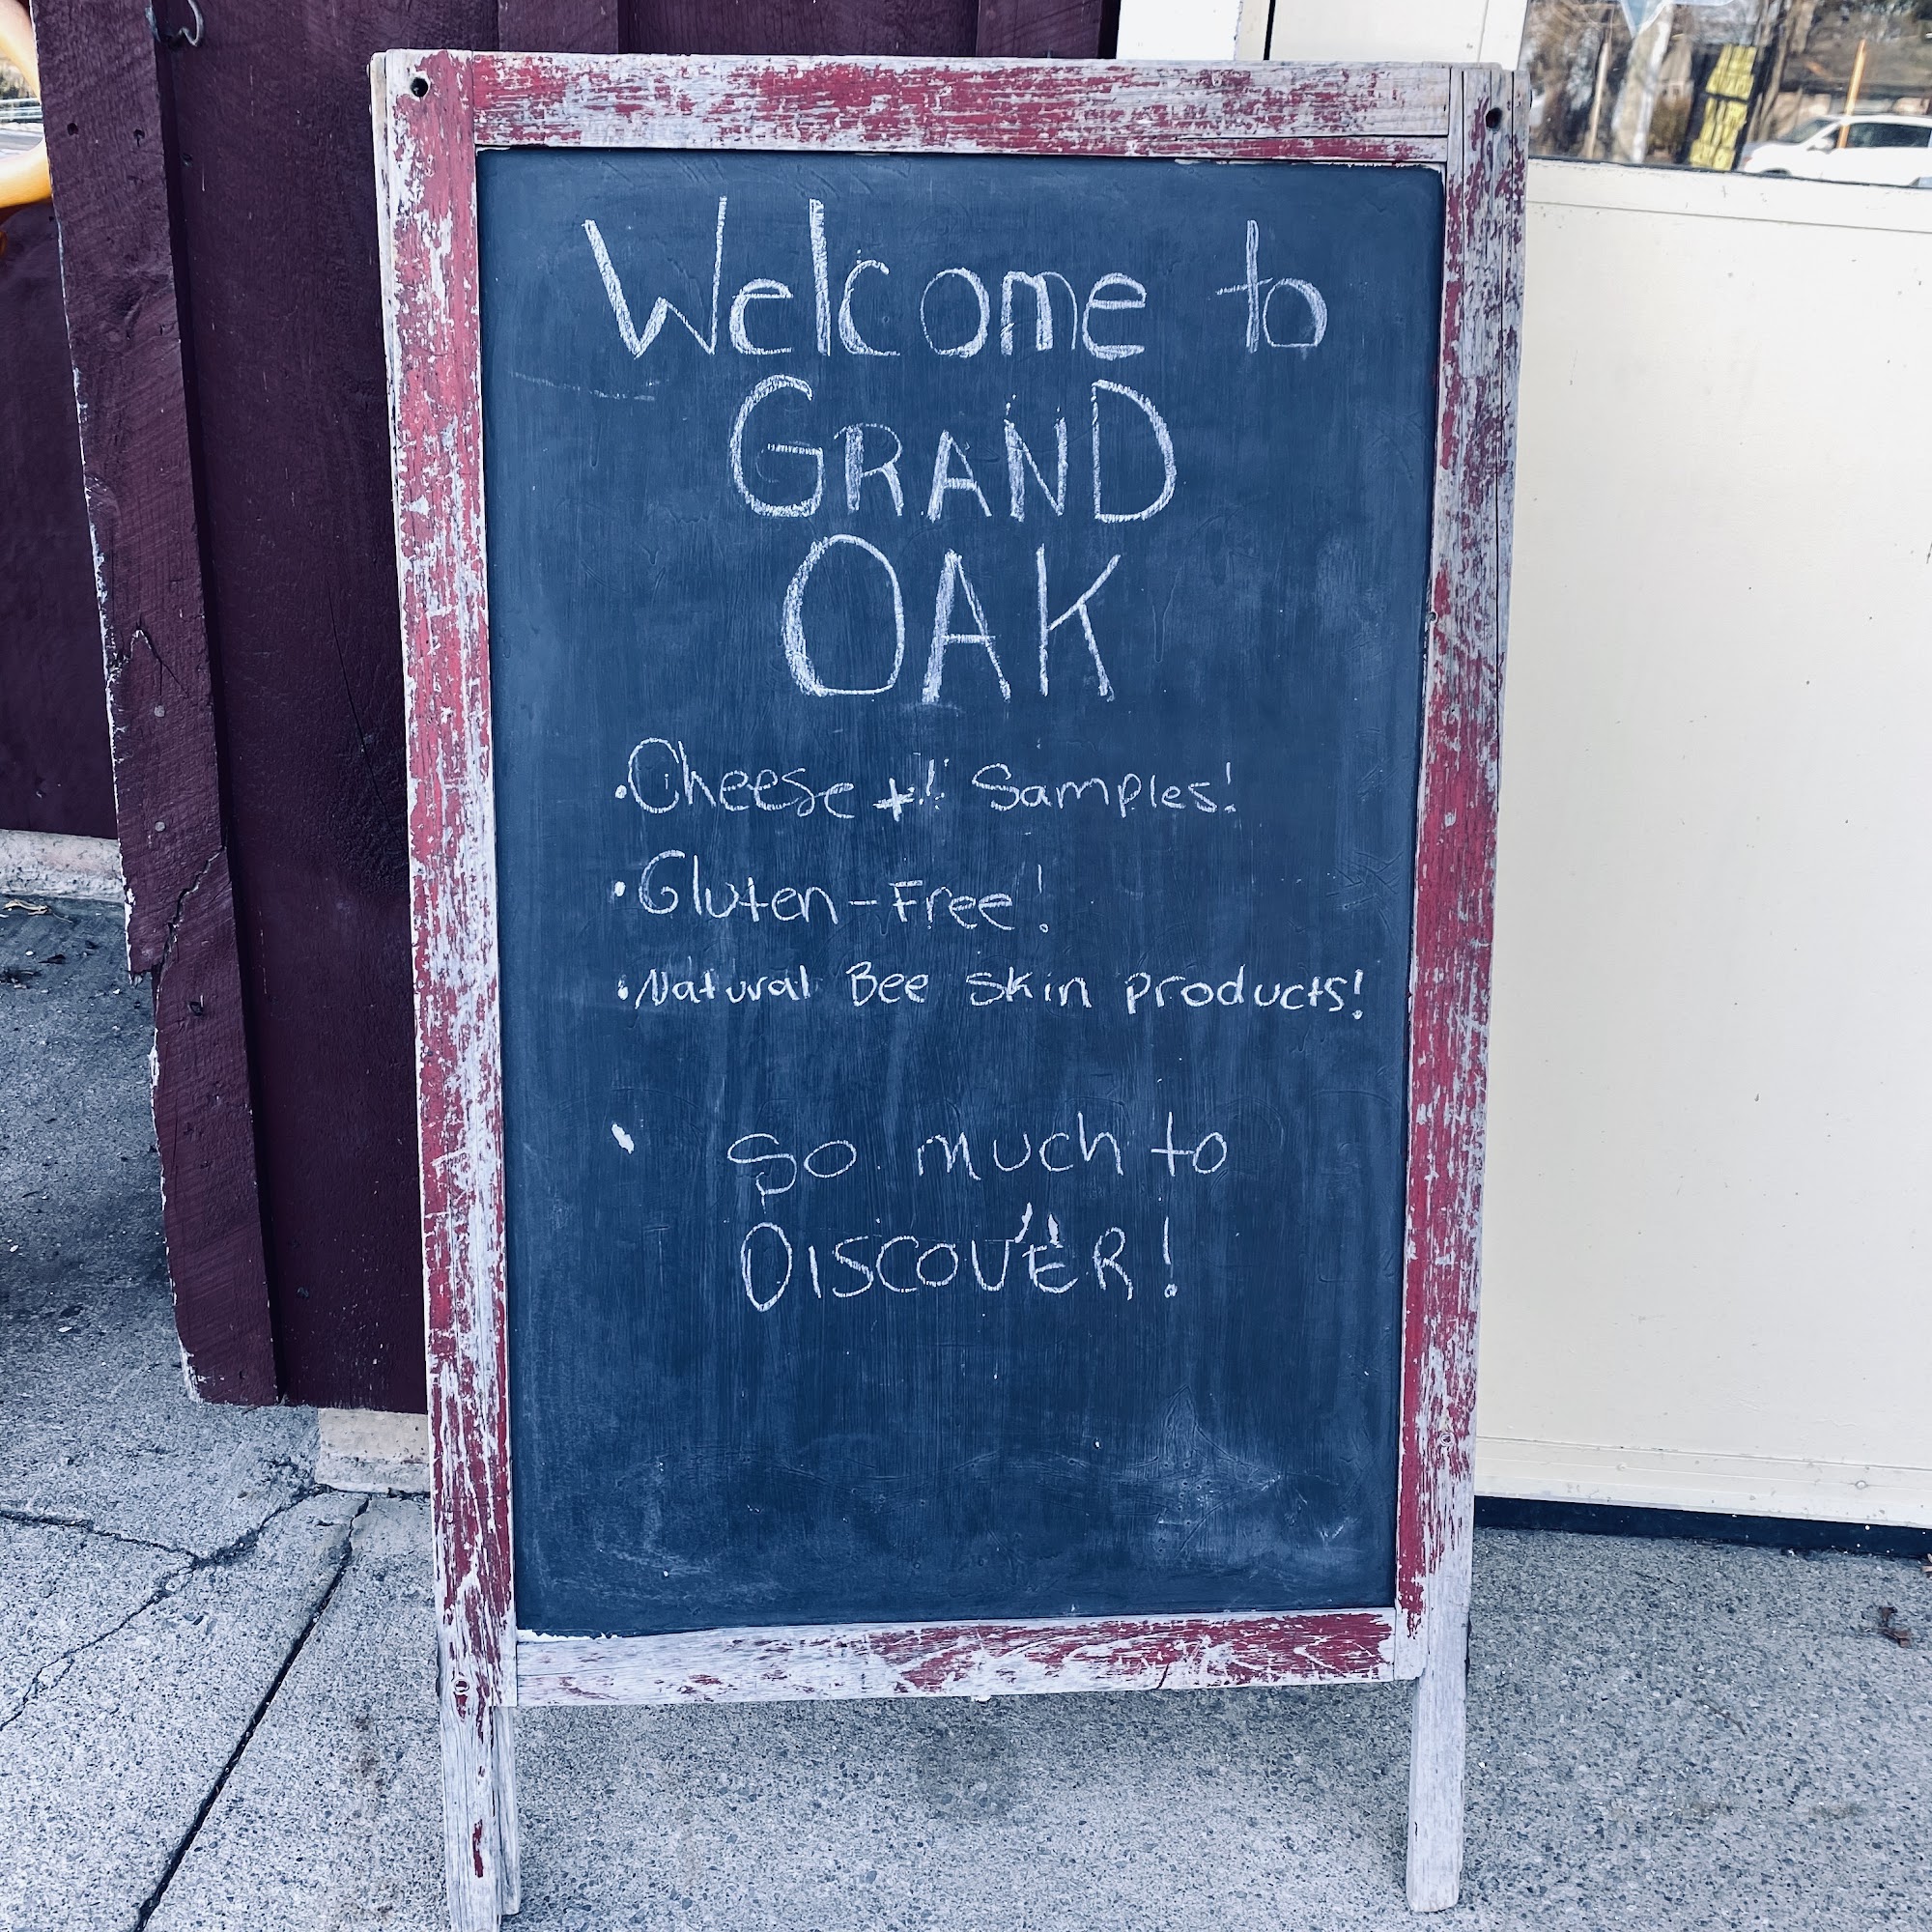 Welcome to
GRAND
OAK
•Cheese +!! Samples!
•Gluten-Free!
•Natural Bee skin products!
So much to
DISCOVER!